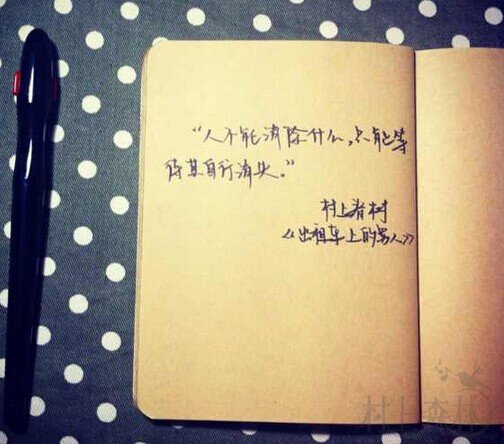 “人不能消除什么，只能等
待其自行消失。”
村上春树
《出租车上的男人》
村上森林